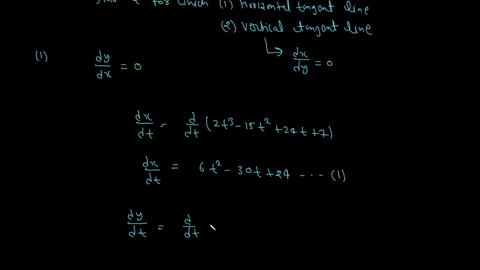 find t for which (1) horizontal tangent line
(2) vertical tangent line
(1) dy/dx = 0
dx/dy = 0
dx/dt = d/dt (2t³ - 15t² + 24t + 7)
dx/dt = 6t² - 30t + 24 --- (1)
dy/dt = d/dt